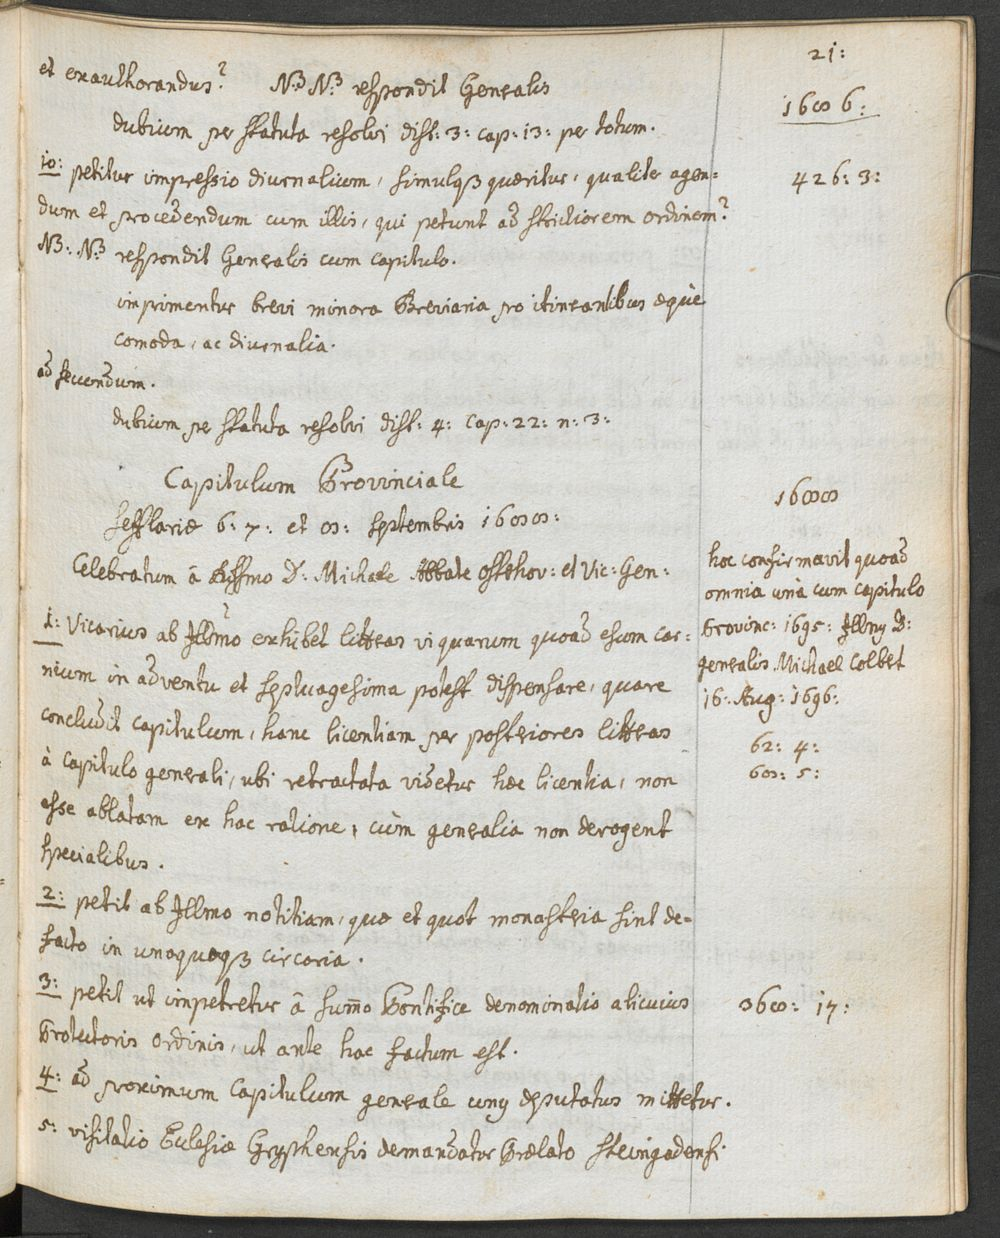 21:
et exauthorandus? NB NB respondit Generalis
1686:
dubium per statuta resolvi dist: 3: cap: 13: per totum.
10: petitur impressio diurnalium, simulqȝ quæritur, qualiter agen=
426: 3:
dum et procedendum cum illis, qui petunt ad strictiorem ordinem?
NB: NB respondit Generalis cum capitulo.
imprimentur brevi minora Breviaria pro itinerantibus æquè
comoda, ac diurnalia.
ad secundum.
dubium per statuta resolvi dist: 4: cap: 22: n: 3:
Capitulum Provinciale
1688
Schlariæ 6: 7: et 8: septembris 1688:
Celebratum â Rssmo D: Michaele Abbate Osterhov: et Vic: Gen:
hoc confirmavit quoad
omnia unà cum capitulo
Provinc: 1695: Illmꝯ D:
generalis Michael Colbet
16: Aug: 1696:
62: 4:
68: 5:
1: Vicarius ab Illmo exhibet litteras vi quarum quoad esum car=
nium in adventu et septuagesima potest dispensare, quare
concludit capitulum, hanc licentiam per posteriores litteras
à capitulo generali, ubi retractata videtur hæc licentia, non
esse ablatam ex hac ratione, cùm generalia non derogent
specialibus.
2: petit ab Illmo notitiam, quæ et quot monasteria sint de=
facto in unaquaqȝ circaria.
3: petit ut impetretur â sum̄o Pontifice denominatio alicuius
368: 17:
Protectoris ordinis, ut ante hac factum est.
4: ad proximum capitulum generale unꝯ deputatus mittetur.
5: visitatio Eclesiæ Gryphensis demandatur Prælato Steingadensi